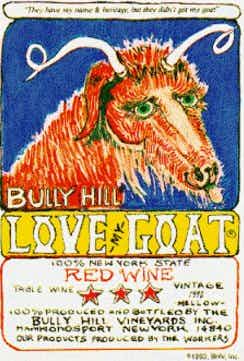 "They have my name & heritage, but they didn't get my goat"
BULLY HILL
LOVE MY GOAT®
100% NEW YORK STATE
RED WINE
TABLE WINE ★ ★ ★ VINTAGE
MELLOW
100% PRODUCED AND BOTTLED BY THE
BULLY HILL VINEYARDS INC.
HAMMONDSPORT NEW YORK 14840
OUR PRODUCTS PRODUCED BY THE WORKERS